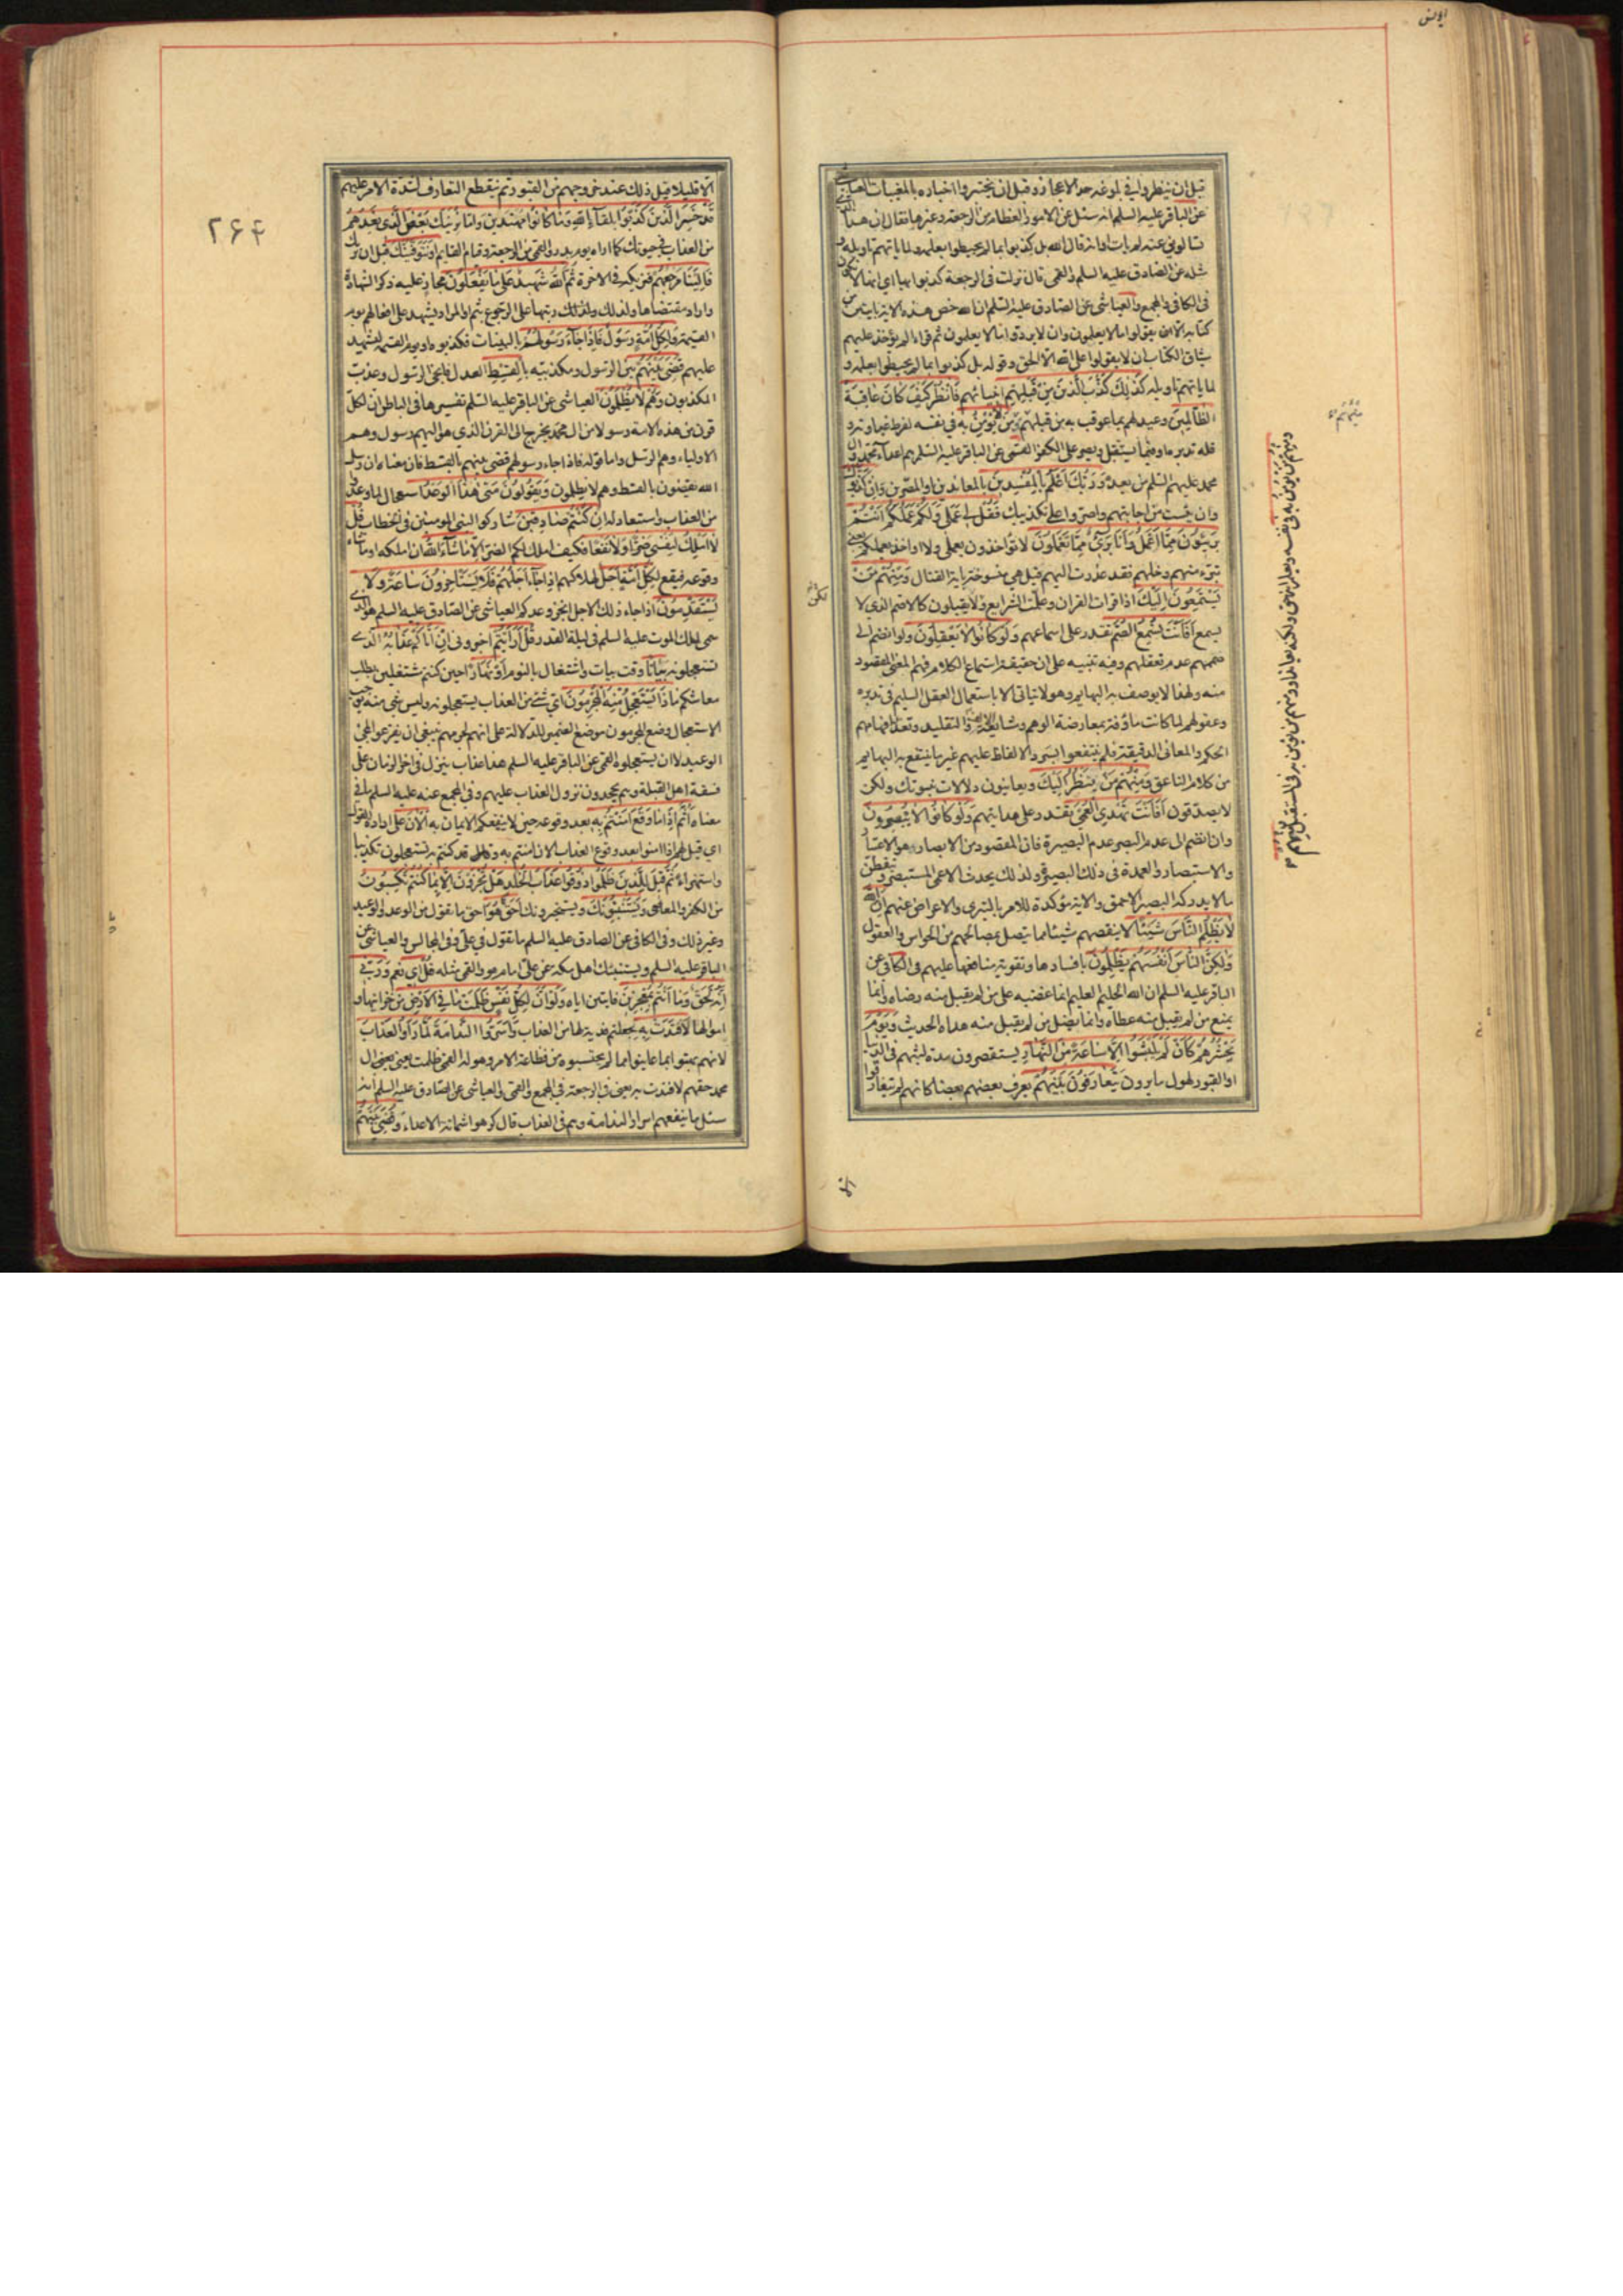 يونس
قبل ان ينظروا في بلوغه حد الاعجاز وقبل ان يختبروا اخباره بالمغيبات العياشي
عن الباقر عليه السلم انه سئل عن الامور العظام من الرجعة وغيرها فقال ان هذا الذي
تسالوني عنه لم يات اوانه قال الله بل كذبوا بما لم يحيطوا بعلمه ولما ياتهم تاويله و
مثله عن الصادق عليه السلم والقمي قال نزلت في الرجعة كذبوا بها اي انها لا تكون
في الكافي والمجمع والعياشي عن الصادق عليه السلم ان الله خص هذه الامة بايتين من
كتابه الا يقولوا ما لا يعلمون وان لا يردوا ما لا يعلمون ثم قرء الم يؤخذ عليهم
ميثاق الكتاب ان لا يقولوا على الله الا الحق وقوله بل كذبوا بما لم يحيطوا بعلمه و
لما ياتهم تاويله كَذٰلِكَ كَذَّبَ الَّذينَ مِنْ قَبْلِهِمْ انبيائهم فَانْظُرْ كَيْفَ كَانَ عَاقِبَةُ
الظَّالِمِينَ وعيد لهم بما عوقب به من قبلهم وَمِنْهُمْ مَنْ يُؤْمِنُ بِه في نفسه لفرط غباوته و
قلة تدبره او فيما يستقبل ويصر على الكفر القمي عن الباقر عليه السلم هم اعداء محمد وال
محمد عليهم السلم من بعده وَرَبُّكَ اَعْلَمُ بِالْمُفْسِدينَ بالمعاندين او المصرين وَاِنْ كَذَّبُوكَ
وان يئست من اجابتهم واصروا على تكذيبك فَقُلْ لي عَمَلي وَلَكُمْ عَمَلُكُمْ اَنْتُمْ
بَريئُونَ مِمَّا اَعْمَلُ وَاَنَا بَرِيءٌ مِمَّا تَعْمَلُونَ لا تؤاخذون بعملي ولا اؤاخذ بعملكم يعني
تبرء منهم وخلهم فقد عذرت اليهم قيل هي منسوخة باية القتال وَمِنْهُمْ مَنْ
يَسْتَمِعُونَ اِلَيْكَ اذا قرات القران وعلمت الشرايع ولا يقبلون كالاصم الذي لا
يسمع اَفَاَنْتَ تُسْمِعُ الصُّمَّ تقدر على اسماعهم وَلَوْ كَانُوا لَا يَعْقِلُونَ ولو انضم الى
صممهم عدم تعقلهم وفيه تنبيه على ان حقيقة استماع الكلام فهم المعنى المقصود
منه ولهذا لا يوصف به البهايم وهو لا يتاتى الا باستعمال العقل السليم في تدبره
وعقولهم لما كانت ماؤفة بمعارضة الوهم ومشايعة الالف والتقليد وتعذر افهامهم
الحكم والمعاني الدقيقة فلم ينتفعوا بسرد الالفاظ عليهم غير ما ينتفع به البهايم
من كلام الناعق وَمِنْهُمْ مَنْ يَنْظُرُ اِلَيْكَ ويعاينون دلالات نبوتك ولكن
لا يصدقون اَفَاَنْتَ تَهْدِي الْعُمْيَ تقدر على هدايتهم وَلَوْ كَانُوا لَا يُبْصِرُونَ
وان انضم الى عدم البصر عدم البصيرة فان المقصود من الابصار هو الاعتبار
والاستبصار والعمدة في ذلك البصيرة ولذلك يحدث الاعمى المستبصر ويتفطن
ما لا يدركه البصير الاحمق والاية مؤكدة للامر بالتبري والاعراض عنهم اِنَّ اللهَ
لَا يَظْلِمُ النَّاسَ شَيْئًا لا ينقصهم شيئا مما يتصل بمصالحهم من الحواس والعقول
وَلٰكِنَّ النَّاسَ اَنْفُسَهُمْ يَظْلِمُونَ بافسادها وتفويت منافعها عليهم في الكافي عن
الباقر عليه السلم ان الله الحليم العليم انما غضبه على من لم يقبل منه رضاه وانما
يمنع من لم يقبل منه عطاه وانما يضل من لم يقبل منه هداه الحديث وَيَوْمَ
يَحْشُرُهُمْ كَاَنْ لَمْ يَلْبَثُوا اِلَّا سَاعَةً مِنَ النَّهَارِ يستقصرون مدة لبثهم في الدنيا
او القبور لهول ما يرون يَتَعَارَفُونَ بَيْنَهُمْ يعرف بعضهم بعضا كانهم لم يتعارفوا
الا
۲۶۴
الا قليلا قيل ذلك عند خروجهم من القبور ثم ينقطع التعارف لشدة الامر عليهم
قَدْ خَسِرَ الَّذينَ كَذَّبُوا بِلِقَآءِ اللهِ وَمَا كَانُوا مُهْتَدينَ وَاِمَّا نُرِيَنَّكَ بَعْضَ الَّذي نَعِدُهُمْ
من العذاب في حيوتك كما اراه يوم بدر والقمي من الرجعة وقيام القايم اَوْ نَتَوَفَّيَنَّكَ قبل ان نريك
فَاِلَيْنَا مَرْجِعُهُمْ فنريكه في الاخرة ثُمَّ اللهُ شَهيدٌ عَلى مَا يَفْعَلُونَ مجاز عليه ذكر الشهادة
واراد مقتضاها ولذلك رتبها على الرجوع بثم او المراد يشهد على افعالهم يوم
القيمة وَلِكُلِّ اُمَّةٍ رَسُولٌ فَاِذَا جَآءَ رَسُولُهُمْ بالبينات فكذبوه او يوم القيمة ليشهد
عليهم قُضِيَ بَيْنَهُمْ بين الرسول ومكذبيه بِالْقِسْطِ بالعدل فانجي الرسول وعذب
المكذبون وَهُمْ لَا يُظْلَمُونَ العياشي عن الباقر عليه السلم تفسيرها في الباطن ان لكل
قرن من هذه الامة رسولا من ال محمد يخرج الى القرن الذي هو اليهم رسول وهم
الاولياء وهم الرسل واما قوله فاذا جاء رسولهم قضي بينهم بالقسط فان معناه ان رسل
الله يقضون بالقسط وهم لا يظلمون وَيَقُولُونَ مَتى هٰذَا الْوَعْدُ استعجال لما وعدوا
من العذاب واستبعاد له اِنْ كُنْتُمْ صَادِقينَ شاركوا النبي المؤمنين في الخطاب قُلْ
لَا اَمْلِكُ لِنَفْسي ضَرًّا وَلَا نَفْعًا فكيف املك لكم الضر اِلَّا مَا شَآءَ اللهُ ان املكه او ما شاء
وقوعه فيقع لِكُلِّ اُمَّةٍ اَجَلٌ لهلاكهم اِذَا جَآءَ اَجَلُهُمْ فَلَا يَسْتَاْخِرُونَ سَاعَةً وَلَا
يَسْتَقْدِمُونَ اذا جاء ذلك الاجل انجز وعدكم العياشي عن الصادق عليه السلم هو الذي
سمي لملك الموت عليه السلم في ليلة القدر قُلْ اَرَاَيْتُمْ اخبروني اِنْ اَتَاكُمْ عَذَابُهُ الذي
تستعجلونه بَيَاتًا وقت بيات واشتغال بالنوم اَوْ نَهَارًا حين كنتم مشتغلين بطلب
معاشكم مَاذَا يَسْتَعْجِلُ مِنْهُ الْمُجْرِمُونَ اي شيء من العذاب يستعجلونه وليس شيء منه يوجب
الاستعجال وضع المجرمون موضع الضمير للدلالة على انهم لجرمهم ينبغي ان يفزعوا لمجيء
الوعيد لا ان يستعجلوه القمي عن الباقر عليه السلم هذا عذاب ينزل في اخر الزمان على
فسقة اهل القبلة وهم يجحدون نزول العذاب عليهم وفي المجمع عنه عليه السلم ما في
معناه اَثُمَّ اِذَا مَا وَقَعَ آمَنْتُمْ بِه بعد وقوعه حين لا ينفعكم الايمان به آلْآنَ على ارادة القول
اي قيل لهم اذا امنوا بعد وقوع العذاب الان امنتم به وَقَدْ كُنْتُمْ بِه تَسْتَعْجِلُونَ تكذيبا
واستهزاء ثُمَّ قيلَ لِلَّذينَ ظَلَمُوا ذُوقُوا عَذَابَ الْخُلْدِ هَلْ تُجْزَوْنَ اِلَّا بِمَا كُنْتُمْ تَكْسِبُونَ
من الكفر والمعاصي وَيَسْتَنْبِئُونَكَ ويستخبرونك اَحَقٌّ هُوَ احق ما تقول من الوعد والوعيد
وغير ذلك وفي الكافي عن الصادق عليه السلم ما تقول في علي وفي المجالس والعياشي عن
الباقر عليه السلم ويستنبئك اهل مكة عن علي امام هو والقمي مثله قُلْ اِي نعم وَرَبّي
اِنَّهُ لَحَقٌّ وَمَا اَنْتُمْ بِمُعْجِزينَ فايتين اياه وَلَوْ اَنَّ لِكُلِّ نَفْسٍ ظَلَمَتْ مَا فِي الْاَرْضِ من خزائنها و
اموالها لَافْتَدَتْ بِه لجعلته فدية لها من العذاب وَاَسَرُّوا النَّدَامَةَ لَمَّا رَاَوُا الْعَذَابَ
لانهم بهتوا بما عاينوا مما لم يحتسبوه من فظاعة الامر وهوله القمي ظلمت يعني ال
محمد حقهم لافتدت به يعني في الرجعة في المجمع والقمي والعياشي عن الصادق عليه السلم انه
سئل ما ينفعهم اسرار الندامة وهم في العذاب قال كرهوا شماتة الاعداء وَقُضِيَ بَيْنَهُمْ